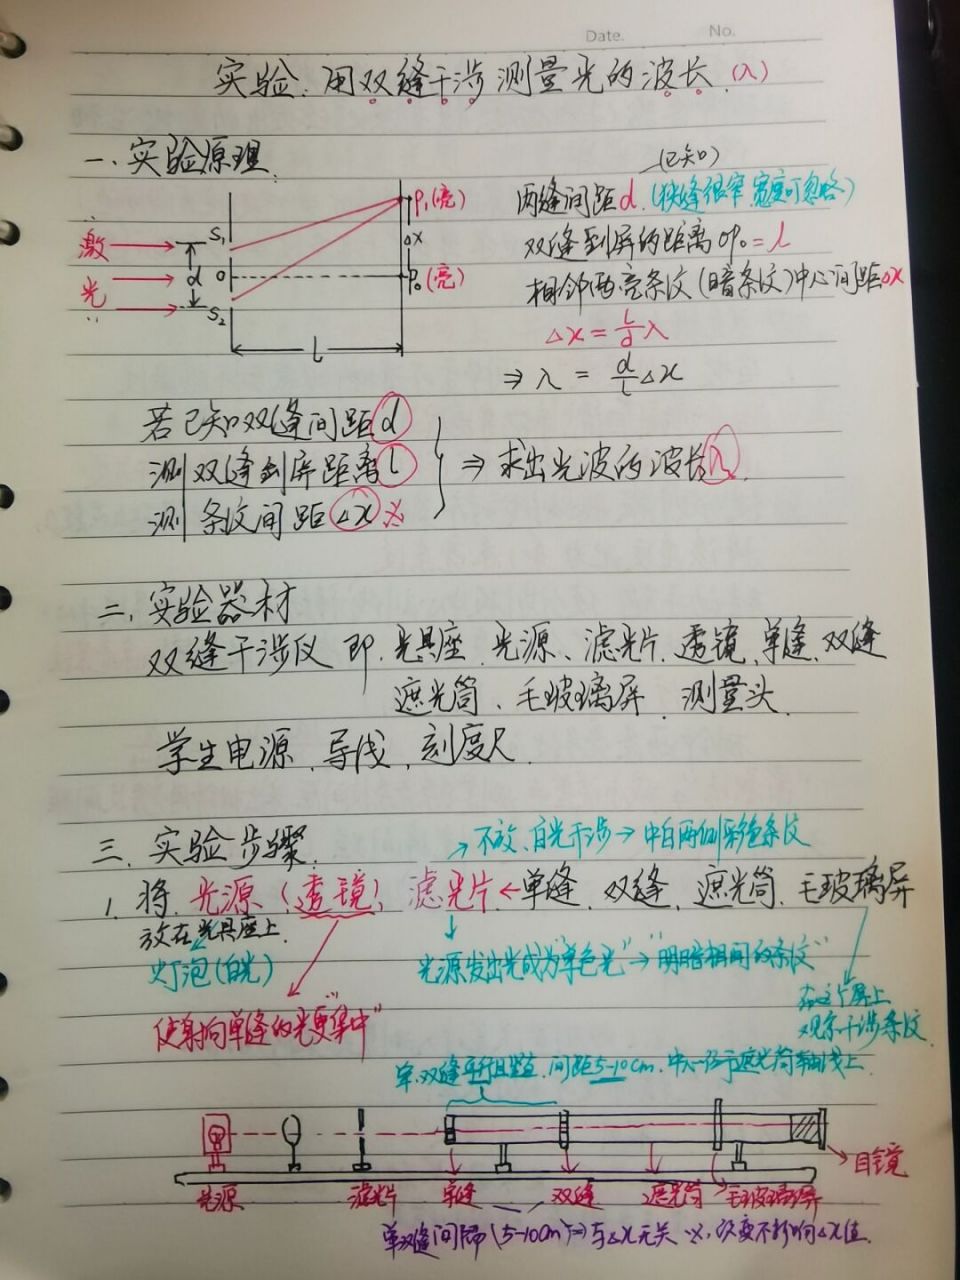 Date. No.
实验：用双缝干涉测量光的波长(λ)
一、实验原理
(已知)
两缝间距d.(狭缝很窄,宽度可忽略)
双缝到屏的距离OP₀=l
相邻两亮条纹(暗条纹)中心间距Δx
Δx=l/d λ
⇒λ=d/l Δx
激
光
S₁
d
O
S₂
P₁(亮)
Δx
P₀(亮)
l
若已知双缝间距d
测双缝到屏距离l
测条纹间距Δx
⇒求出光波的波长λ.
二、实验器材
双缝干涉仪 即.光具座.光源、滤光片.透镜、单缝、双缝
遮光筒、毛玻璃屏.测量头.
学生电源、导线、刻度尺.
三、实验步骤.
→不放、白光干涉→中白两侧彩色条纹
1.将.光源(透镜)滤光片←单缝、双缝、遮光筒、毛玻璃屏
放在光具座上.
灯泡(白光)
光源发出光成为"单色光"→"明暗相间的条纹"
在这个屏上
观察干涉条纹.
"使射向单缝的光更集中"
单.双缝平行且竖直.间距5-10cm.中心位于遮光筒轴线上.
目镜
光源 滤光片 单缝 双缝 遮光筒 毛玻璃屏
单双缝间距(5-10cm)⇒与Δx无关 改变不影响Δx值.